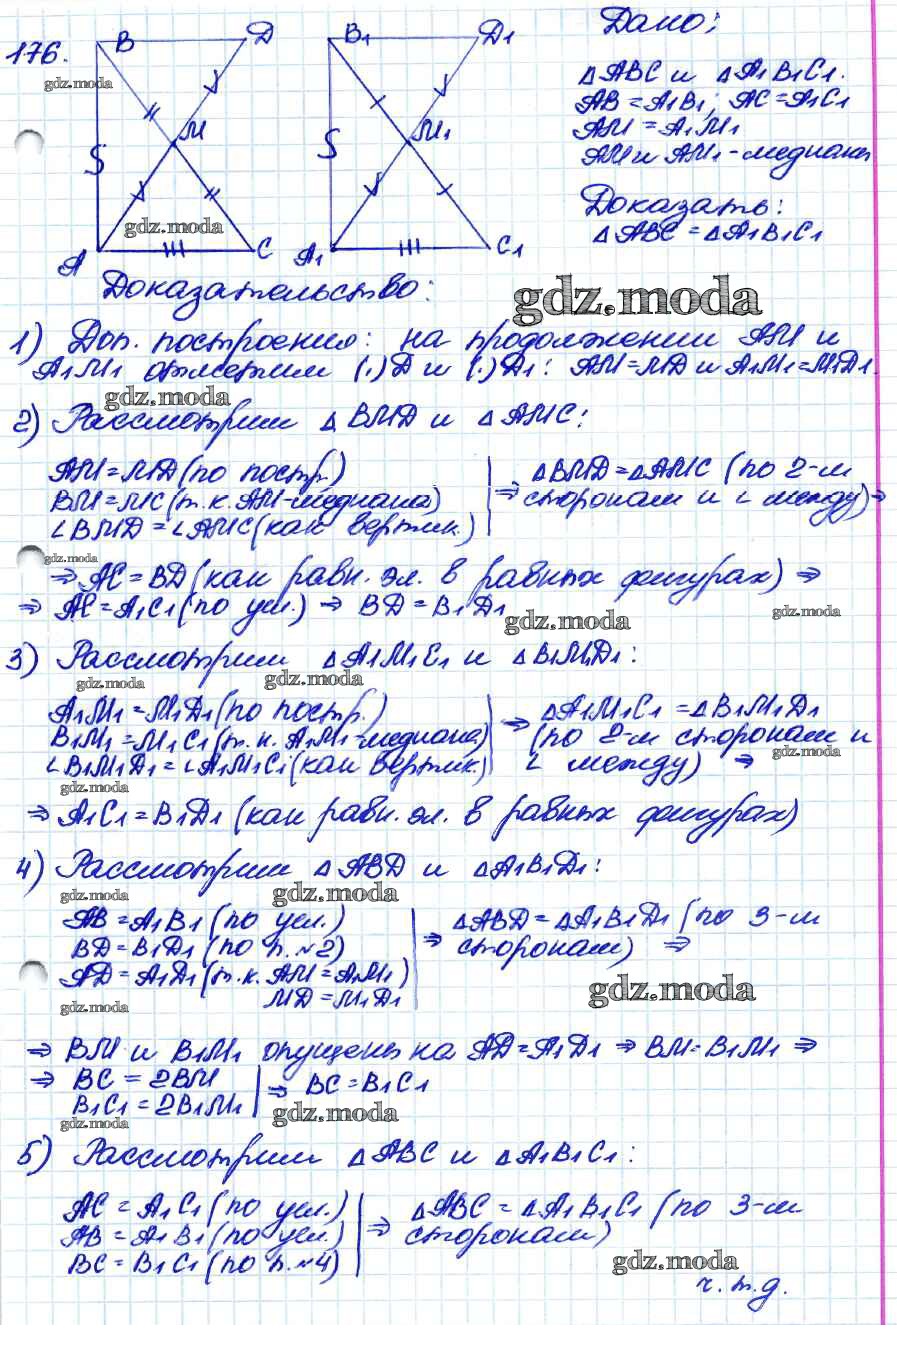 176.
B D B₁ D₁
M M₁
A C A₁ C₁
gdz.moda
gdz.moda
Дано:
△ABC и △A₁B₁C₁.
AB = A₁B₁; AC = A₁C₁
AM = A₁M₁
AM и AM₁ - медианы
Доказать:
△ABC = △A₁B₁C₁
Доказательство:
gdz.moda
1) Доп. построения: на продолжении AM и
A₁M₁ отметим (·) D и (·) D₁: AM = MD и A₁M₁ = M₁D₁.
gdz.moda
2) Рассмотрим △BMD и △AMC:
AM = MD (по постр.)
BM = MC (т.к. AM - медиана)
∠BMD = ∠AMC (как вертик.)
⇒ △BMD = △AMC (по 2-м
сторонам и ∠ между) ⇒
gdz.moda
⇒ AC = BD (как равн. эл. в равных фигурах) ⇒
⇒ AC = A₁C₁ (по усл.) ⇒ BD = B₁D₁
gdz.moda
gdz.moda
3) Рассмотрим △A₁M₁C₁ и △B₁M₁D₁:
gdz.moda
gdz.moda
A₁M₁ = M₁D₁ (по постр.)
B₁M₁ = M₁C₁ (т.к. A₁M₁ - медиана)
∠B₁M₁D₁ = ∠A₁M₁C₁ (как вертик.)
⇒ △A₁M₁C₁ = △B₁M₁D₁
(по 2-м сторонам и
∠ между) ⇒
gdz.moda
gdz.moda
⇒ A₁C₁ = B₁D₁ (как равн. эл. в равных фигурах)
4) Рассмотрим △ABD и △A₁B₁D₁:
gdz.moda
gdz.moda
AB = A₁B₁ (по усл.)
BD = B₁D₁ (по п. №2)
AD = A₁D₁ (т.к. AM = A₁M₁)
MD = M₁D₁
⇒ △ABD = △A₁B₁D₁ (по 3-м
сторонам) ⇒
gdz.moda
gdz.moda
⇒ BM и B₁M₁ опущены на AD = A₁D₁ ⇒ BM = B₁M₁ ⇒
⇒ BC = 2BM
B₁C₁ = 2B₁M₁
⇒ BC = B₁C₁
gdz.moda
gdz.moda
5) Рассмотрим △ABC и △A₁B₁C₁:
AC = A₁C₁ (по усл.)
AB = A₁B₁ (по усл.)
BC = B₁C₁ (по п. №4)
⇒ △ABC = △A₁B₁C₁ (по 3-м
сторонам)
gdz.moda
ч.т.д.